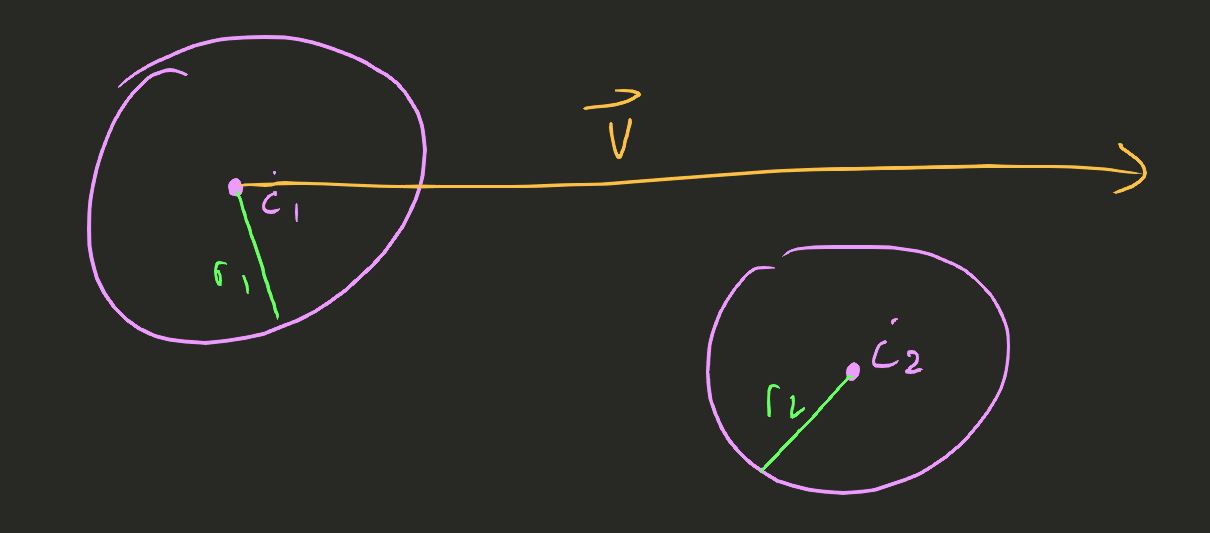 V
C1
r1
C2
r2